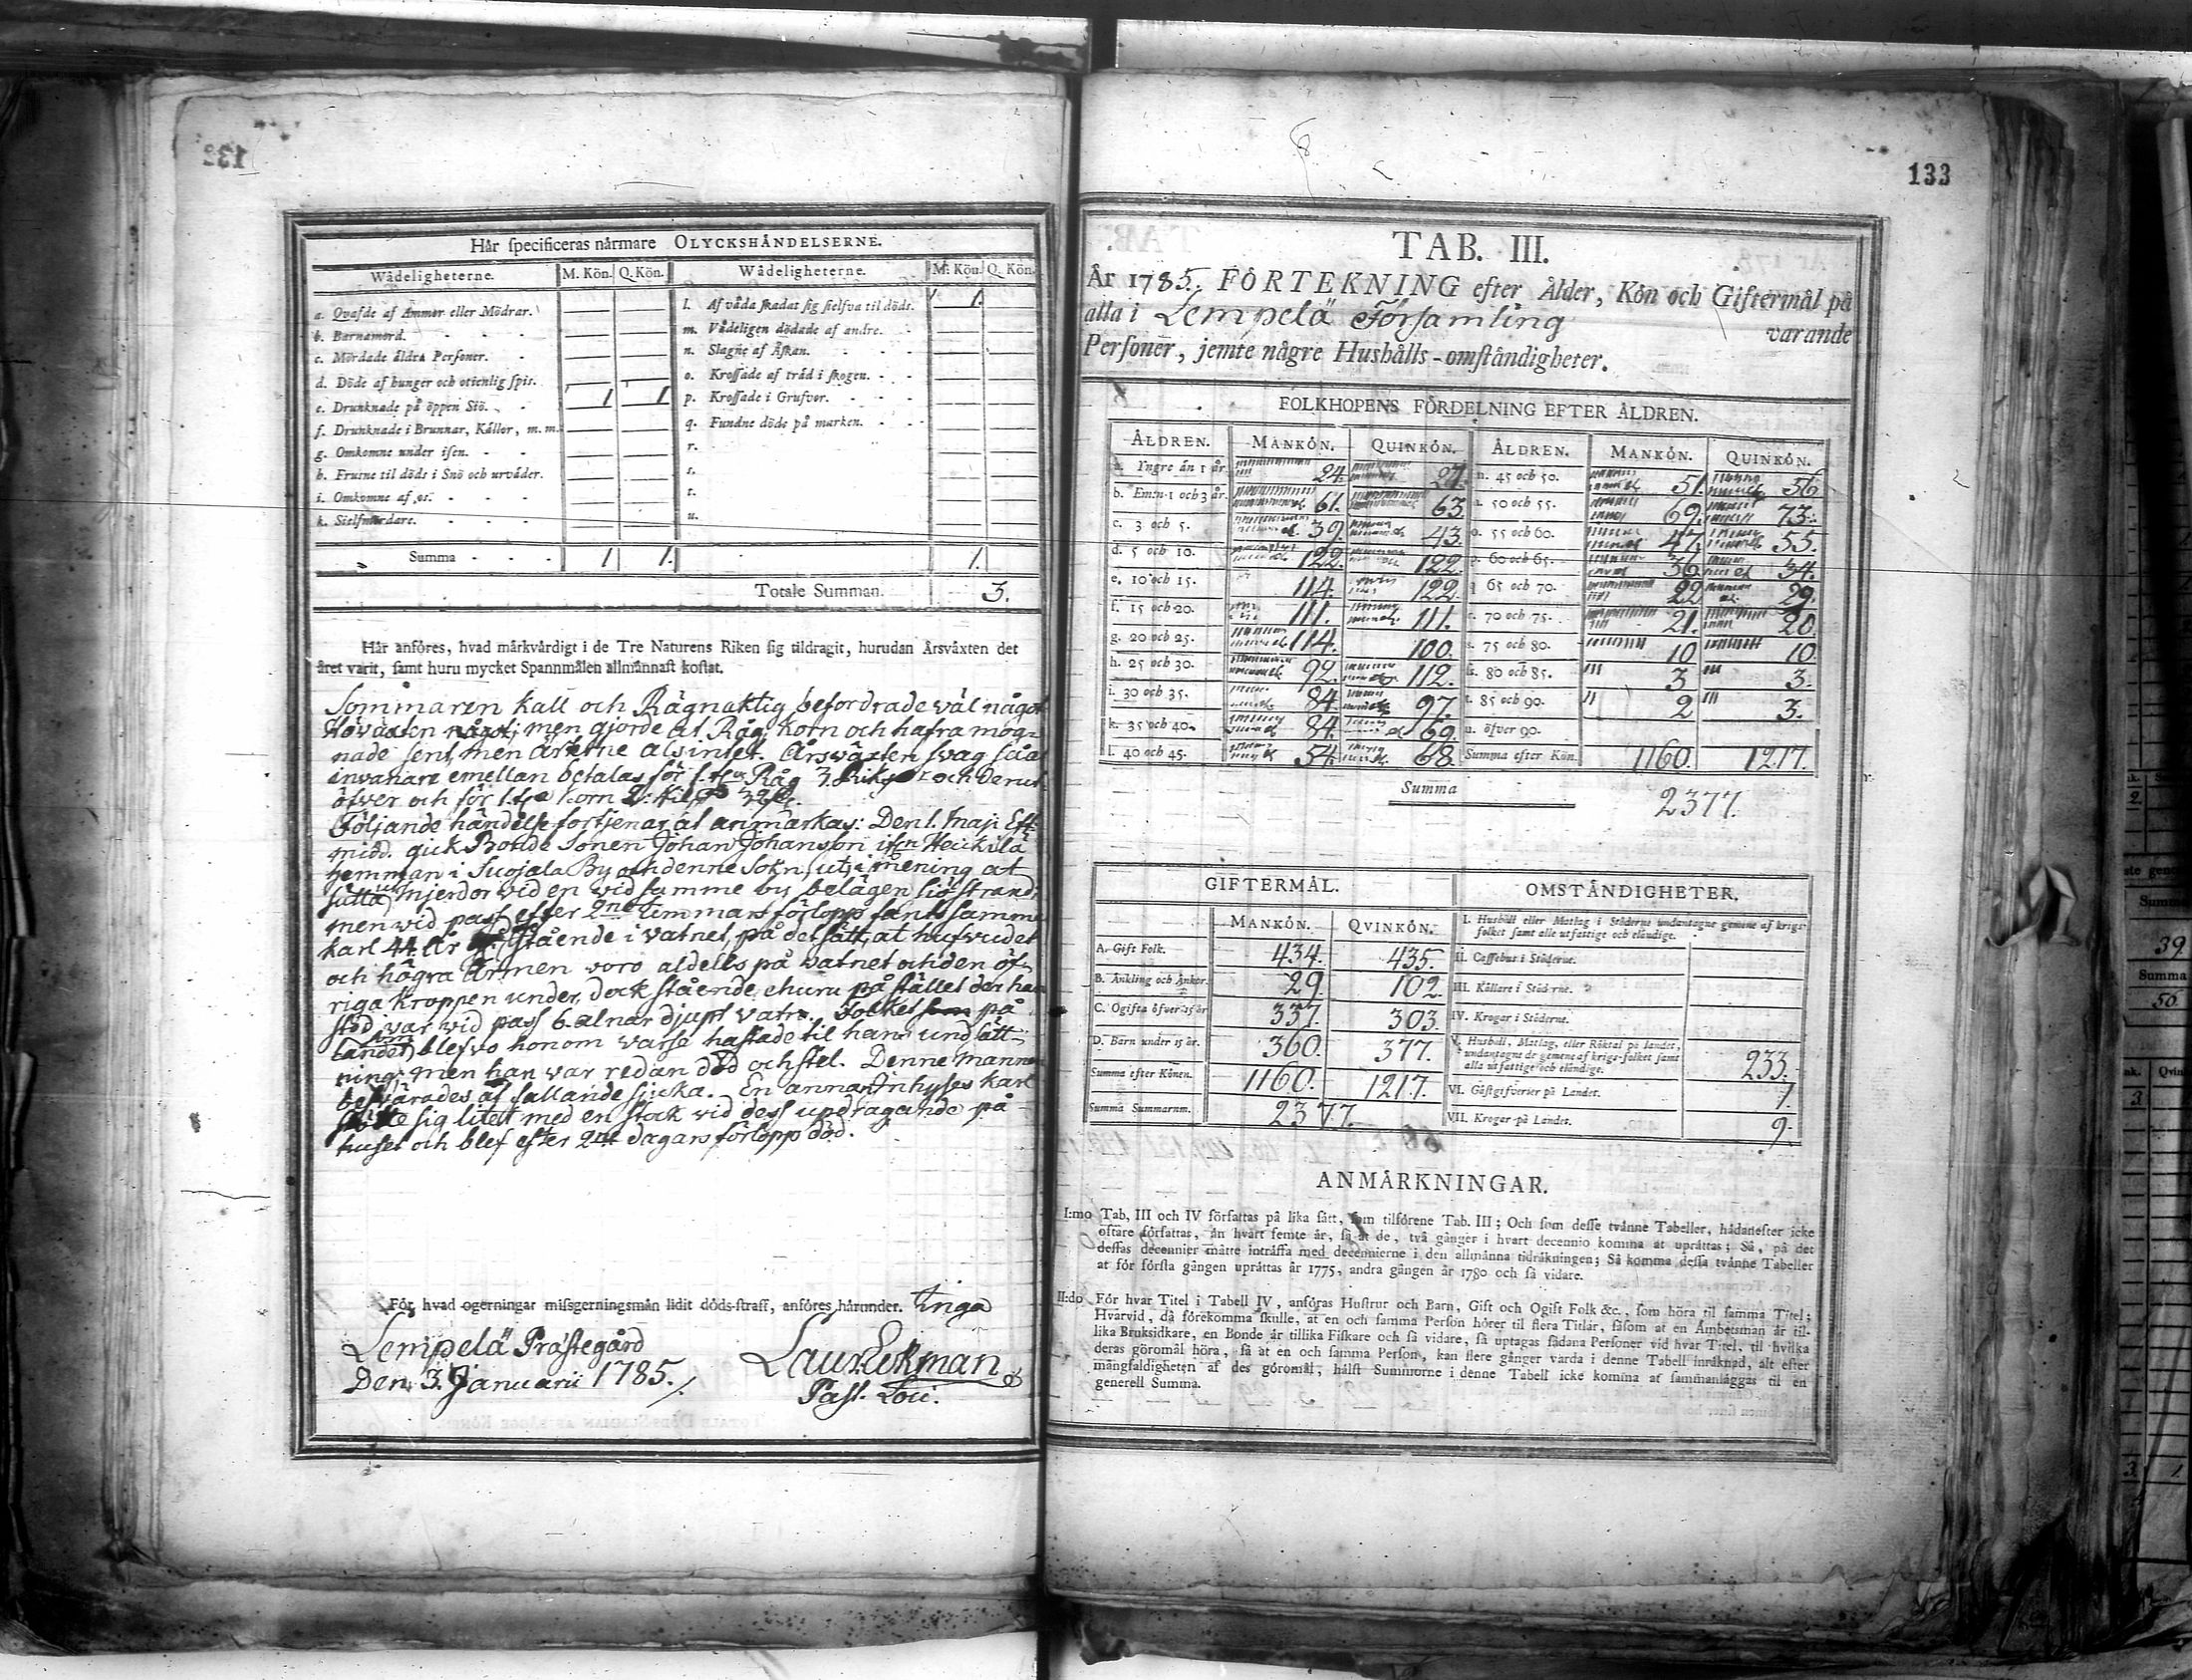 133
Hår specificeras nårmare OLYCKSHÅNDELSERNE.
Wådeligheterne. M. Kön. Q. Kön. Wådeligheterne. M. Kön. Q. Kön.
a. Qvafde af Ammor eller Mödrar. l. Af våda skadat sig sielfva til döds. 1.
b. Barnamord. m. Vådeligen dödade af andre.
c. Mördade åldra Personer. n. Slagne af Åskan.
d. Döde af hunger och otienlig spis. o. Krossade af tråd i skogen.
e. Drunknade på öppen Siö. 1 1. p. Krossade i Grufvor.
f. Drunknade i Brunnar, Kållor, m. m. q. Fundne döde på marken.
g. Omkomne under isen. r.
h. Frusne til döds i Snö och urvåder. s.
i. Omkomne af os. t.
k. Sielfmördare. u.
Summa 1 1. 1.
Totale Summan. 3.
Hår anföres, hvad mårkvårdigt i de Tre Naturens Riken sig tildragit, hurudan Årsvåxten det
året varit, samt huru mycket Spannmålen allmånnast kostat.
Sommaren kall och Rägnaktig befordrade wäl något
Höväxten men gjorde at Råg, Korn och hafra mog-
nade sent, men ärterne alsintet. Årswäxten swag
invånare emellan betalas för 1. Råg 3. och derut-
öfver och för 1. Korn 2:
Följande händelse förtjenar at anmärkas: Den 1. Maji Eft-
midd. gick Bonde Sonen Johan Johansson Heickilä
hemman i Suojala By och denne Sokn, ut i mening at
sätta Mjerdor vid en vid samme by belägen siö strand,
men wid pass efter 2ne timmars förlopp fants samme
karl 44. år stående i vatnet, på det sätt, at hufvudet
och högra Armen voro aldeles på vatnet och den öf-
riga kroppen under, dock stående, ehuru på stället der han
stod var vid pass 6. alnar djupt vatn. Folket som på
landet blefvo honom varse hastade til hans undsätt-
ning, men han var redan död och stel. Denne Mannen
besvärades af fallande sjuka. En annan Inhyses karl
sig litet med en stock vid dess updragande på
huset och blef efter 2ne dagars förlopp död.
För hvad ogerningar missgerningsmån lidit döds-straff, anföres hårunder. Inga
Lempelä Prästegård
Den 3. Januarii 1785.
Laur: Ekman
Past. Loci.
133
TAB. III.
År 1785. FÖRTEKNING efter Ålder, Kön och Giftermål på
alla i Lempelä Församling varande
Personer, jemte någre Hushålls-omståndigheter.
FOLKHOPENS FÖRDELNING EFTER ÅLDREN.
ÅLDREN. MANKÖN. QUINKÖN. ÅLDREN. MANKÖN. QUINKÖN.
a. Yngre ån 1 år. 24. 27. m. 45 och 50. 51. 56
b. Emen 1 och 3 år. 61. 63. n. 50 och 55. 69. 73.
c. 3 och 5. 39. 43. o. 55 och 60. 47. 55.
d. 5 och 10. 122. 122. p. 60 och 65. 36. 34.
e. 10 och 15. 114. 122. q. 65 och 70. 22 29.
f. 15 och 20. 111. 111. r. 70 och 75. 21. 20.
g. 20 och 25. 114. 100. s. 75 och 80. 10 10.
h. 25 och 30. 92. 112. ss. 80 och 85. 3 3.
i. 30 och 35. 84. 97. t. 85 och 90. 2 3.
k. 35 och 40. 84. 69. u. öfver 90.
l. 40 och 45. 54. 68. Summa efter Kön. 1160. 1217.
Summa 2377.
GIFTERMÅL.
MANKÖN. QVINKÖN.
A. Gift Folk. 434. 435.
B. Ånkling och Ånkor. 29. 102.
C. Ogifta öfver 15 år 337. 303.
D. Barn under 15 år. 360. 377.
Summa efter Könen. 1160. 1217.
Summa Summarum. 2377.
OMSTÅNDIGHETER.
I. Hushåll eller Matlag i Ståderne undantagne gemene af krigs-
folket samt alle utfattige och elåndige.
II. Caffehus i Ståderne.
III. Kållare i Ståderne.
IV. Krogar i Ståderne.
V. Hushåll, Matlag, eller Röktal på landet,
undantagne de gemene af krigs-folket samt
alla utfattige och elåndige. 233.
VI. Gåstgifverier på Landet. 1.
VII. Krogar på Landet. 9.
ANMÅRKNINGAR.
I:mo Tab, III och IV författas på lika sått, som tilförene Tab. III; Och som desse tvånne Tabeller, hådanefter icke
oftare författas, ån hvart femte år, så at de, två gånger i hvart decennio komma at upråttas; Så, på det
dessas decennier måtte intråffa med decennierne i den allmånna tidråkningen; Så komma dessa tvånne Tabeller
at för första gången upråttas år 1775, andra gången år 1780 och så vidare.
II:do För hvar Titel i Tabell IV, anföras Hustrur och Barn, Gift och Ogift Folk &c., som höra til samma Titel;
Hvarvid, då förekomma skulle, at en och samma Person hörer til flera Titlar, såsom at en Åmbetsman år til-
lika Bruksidkare, en Bonde år tillika Fiskare och så vidare, så uptagas sådana Personer vid hvar Titel, til hvilka
deras göromål höra, så at en och samma Person, kan flere gånger varda i denne Tabell inråknad, alt efter
mångfaldigheten af des göromål, hålst Summorne i denne Tabell icke komma at sammanlåggas til en
generell Summa.